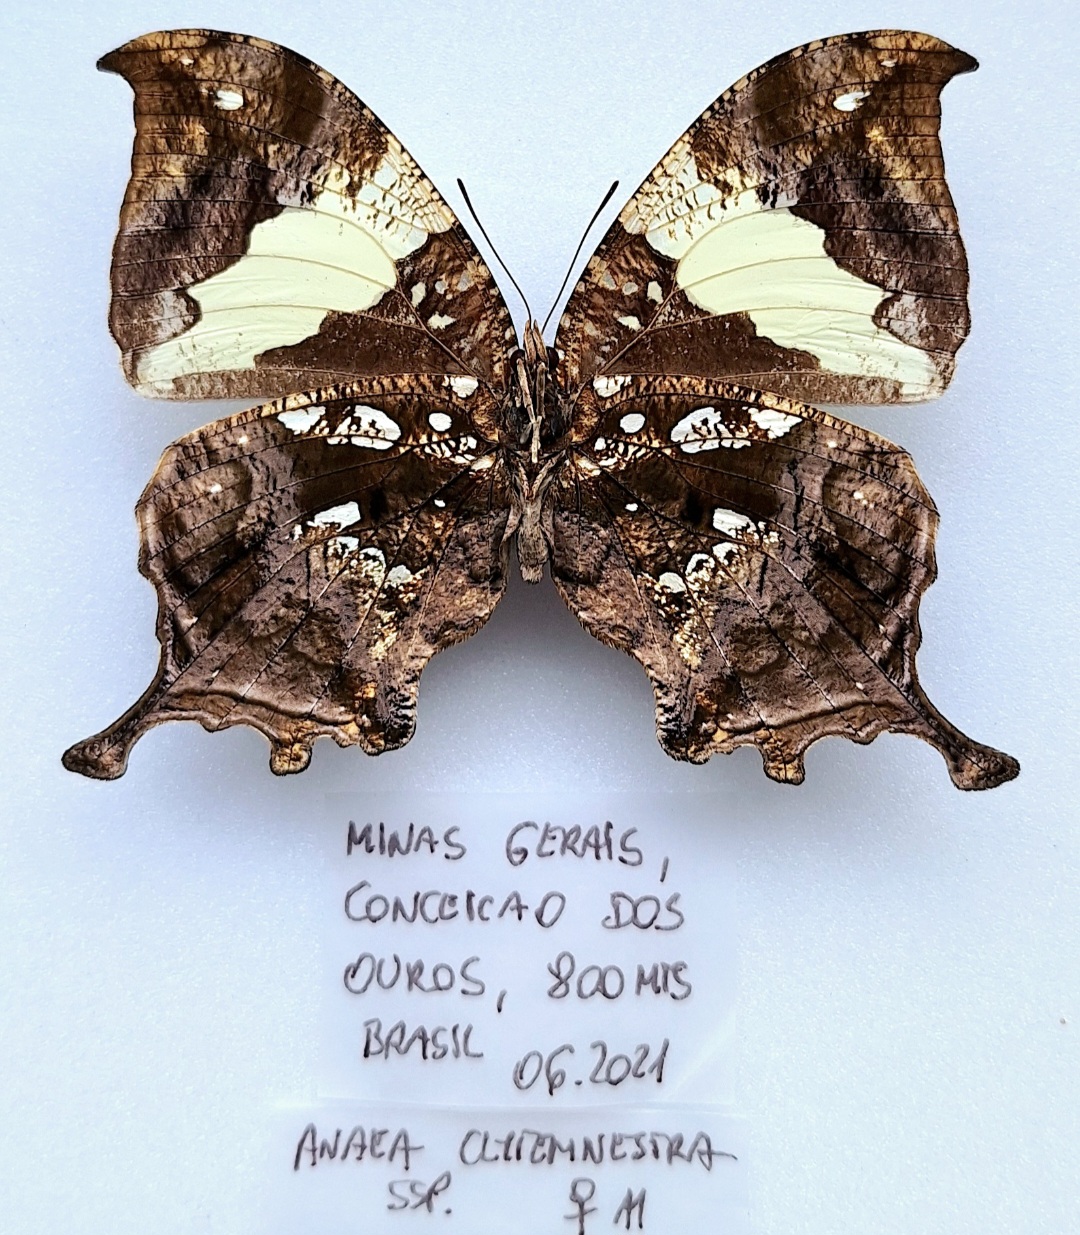 MINAS GERAIS,
CONCEICAO DOS
OUROS, 800 MTS
BRASIL 06.2021
ANAEA CLYTEMNESTRA
SSP. ♀ A1